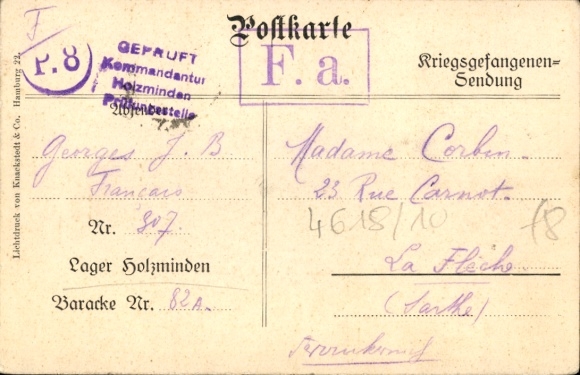 Postkarte
Kriegsgefangenen=
Sendung
I
P. 8
GEPRÜFT
Kommandantur
Holzminden
Prüfungsstelle
F. a.
Absender
Georges J. B
Français
Nr. 307.
Lager Holzminden
Baracke Nr. 82A.
Madame Corbin.
23 Rue Carnot.
4618/10
f8
La Flèche.
(Sarthe)
Lichtdruck von Knackstedt & Co. Hamburg 22.